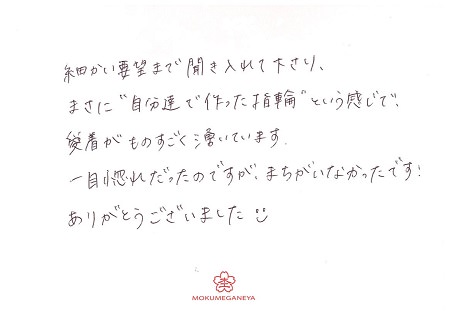 細かい要望まで聞き入れて下さり、
まさに"自分達で作った指輪"という感じで、
愛着がものすごく湧いています。
一目惚れだったのですが、まちがいなかったです!
ありがとうございました
MOKUMEGANEYA